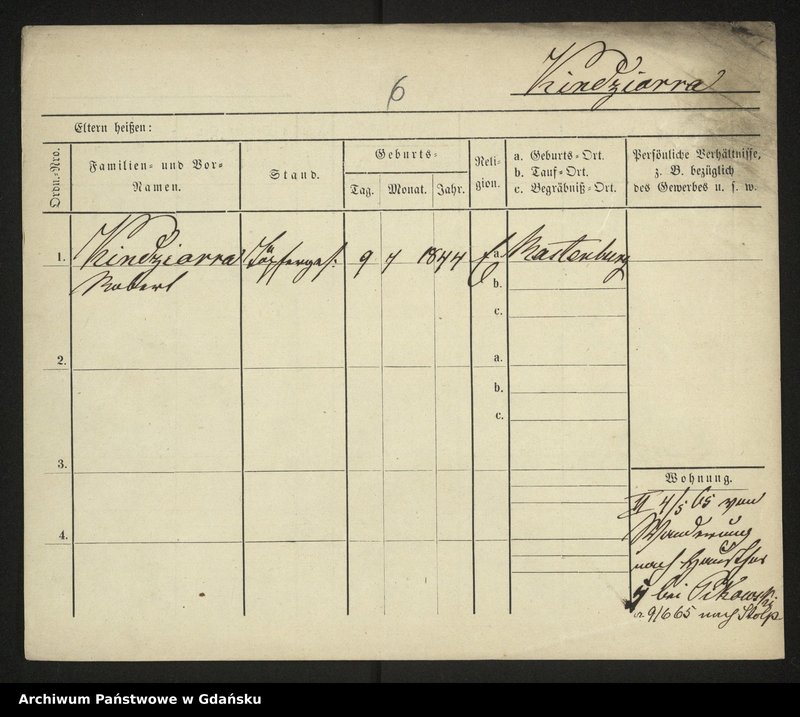 6
Kindziorra
Eltern heißen:
Ordn.-Nro.
Familien- und Vor-Namen.
Stand.
Geburts-
Tag. Monat. Jahr.
Reli-gion.
a. Geburts-Ort.
b. Tauf-Ort.
c. Begräbniß-Ort.
Persönliche Verhältnisse,
z. B. bezüglich
des Gewerbes u. s. w.
1. Kindziorra Töpferges. 9 7 1844 E a. Rastenburg
Robert
b.
c.
2. a.
b.
c.
3.
4.
Wohnung.
4/5 65 von
Wanderung
nach Hausthor
bei
9/6 65 nach Stolp
Archiwum Państwowe w Gdańsku